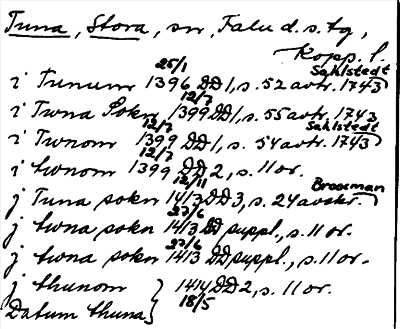 Tuna, Stora, sn, Falu d. s. tg,
Kopp. l.
i Tunum 25/1 1396 DD 1, s. 52 avtr. 1743 Sahlstedt
i Twna Sokn 12/7 1399 DD 1, s. 55 avtr. 1743 Sahlstedt
i Twnom 12/7 1399 DD 1, s. 54 avtr. 1743
i twnom 12/7 1399 DD 2, s. 11 or.
j Tuna sokn 12/11 1413 DD 3, s. 24 avskr. Brocman
j twna sokn 27/6 1413 DD suppl., s. 11 or.
j twna sokn 27/6 1413 DD suppl., s. 11 or.
j thunom } 1414 DD 2, s. 11 or.
Datum thuna } 18/5